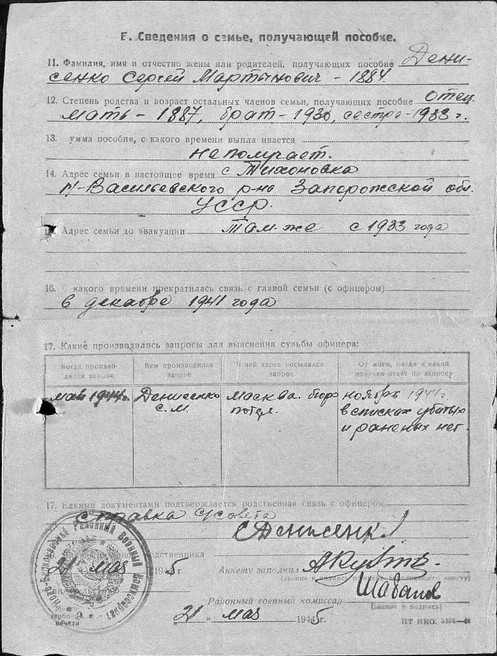 Б. Сведения о семье, получающей пособие.
11. Фамилия, имя и отчество жены или родителей, получающих пособие Дени-
сенко Сергей Мартынович – 1884
12. Степень родства и возраст остальных членов семьи, получающих пособие отец
мать – 1887, брат – 1930, сестра – 1933 г.
13. умма пособия, с какого времени выпла ивается
не получает.
14. Адрес семьи в настоящее время с. Тихоновка
Н-Васильевского р-на Запорожской обл.
УССР.
Адрес семьи до эвакуации там-же с 1933 года
16. какого времени прекратилась связь с главой семьи (с офицером)
в декабре 1941 года
17. Какие производились запросы для выяснения судьбы офицера:
Когда производился запрос
Кем производился запрос
В чей адрес посылался запрос
От кого, когда и какой получен ответ по запросу
май 1944г.
Денисенко С.М.
Москва. бюро потерь
ноябрь 1944г. в списках убитых и раненых нет.
17. Какими документами подтверждается родственная связь с офицером
справка с/совета
С Денисенко
одственника
21 мая 5
Анкету заполнил
Районный военный комиссар Шабанов
(звание и подпись)
21 мая 1945г.